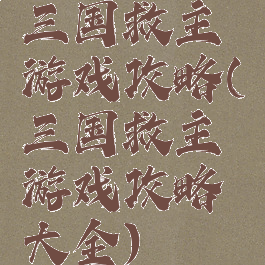 三国救主
游戏攻略(
三国救主
游戏攻略
大全)